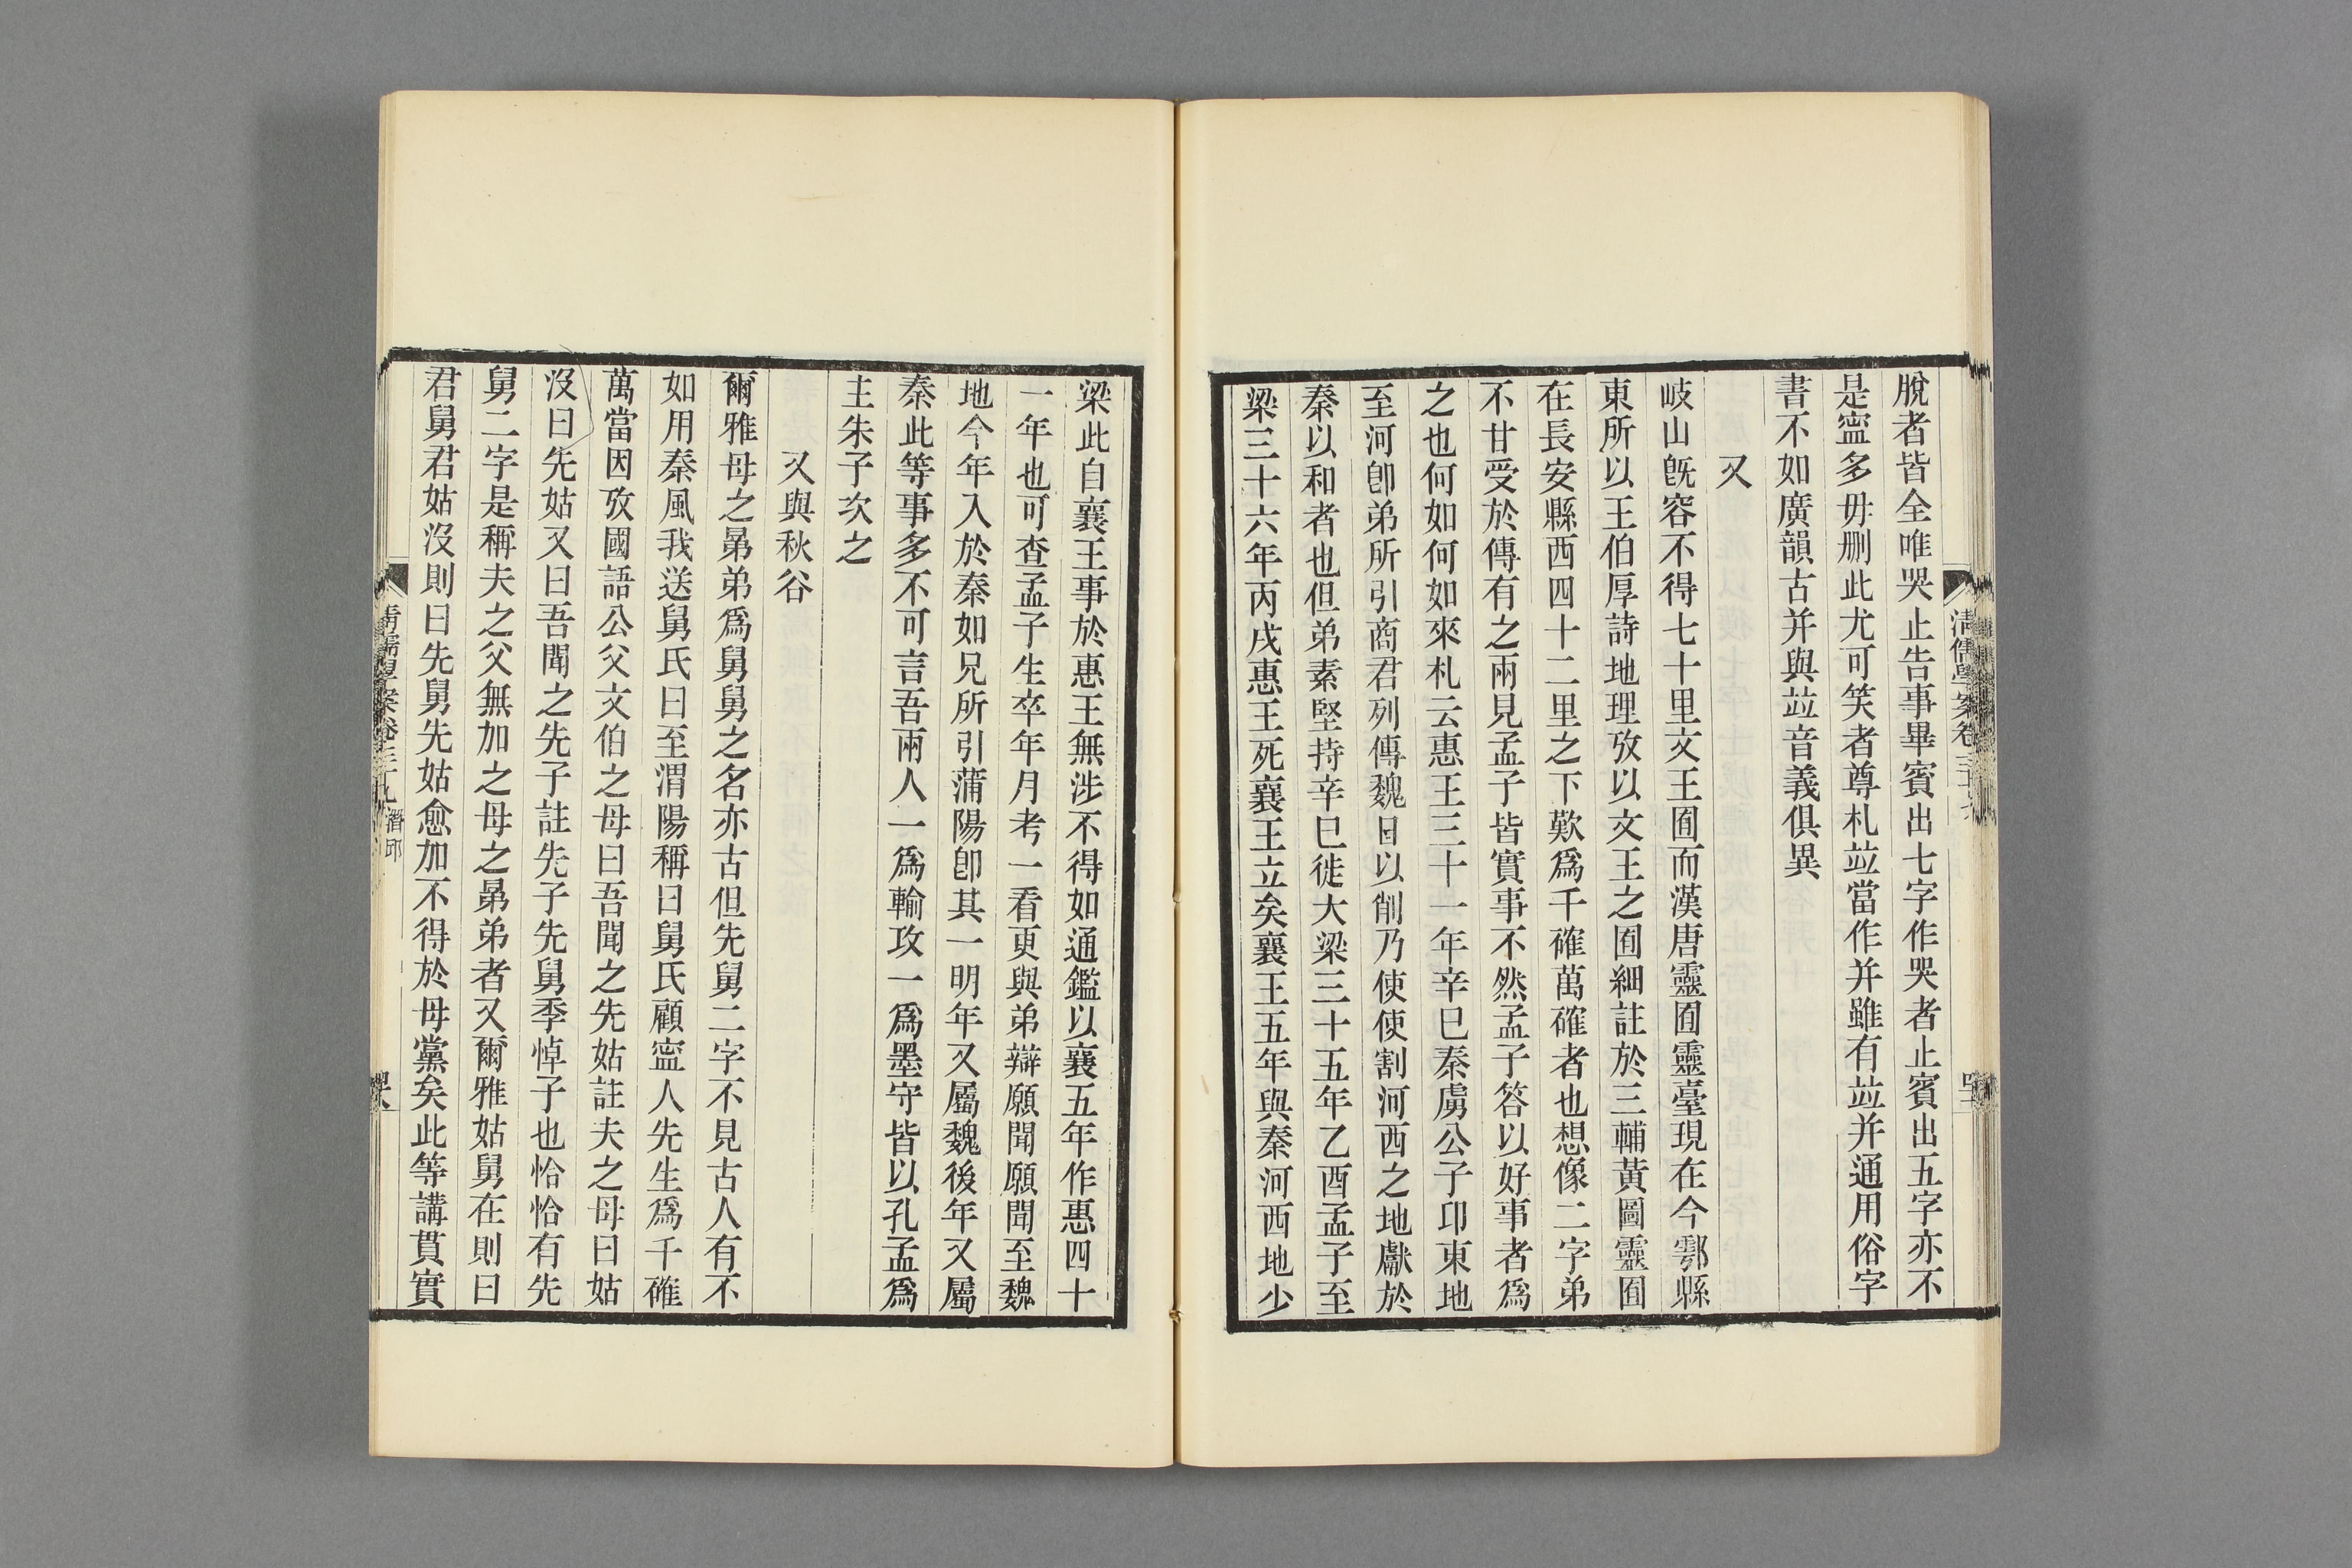 脫者皆全唯哭止告事畢賓出七字作哭者止賓出五字亦不
是寍多毋刪此尤可笑者尊札竝當作并雖有竝并通用俗字
書不如廣韻古并與竝音義俱異
又
岐山旣容不得七十里文王囿而漢唐靈囿靈臺現在今鄠縣
東所以王伯厚詩地理攷以文王之囿細註於三輔黃圖靈囿
在長安縣西四十二里之下歎爲千確萬確者也想像二字弟
不甘受於傳有之兩見孟子皆實事不然孟子答以好事者爲
之也何如何如來札云惠王三十一年辛巳秦虜公子卬東地
至河卽弟所引商君列傳魏日以削乃使使割河西之地獻於
秦以和者也但弟素堅持辛巳徙大梁三十五年乙酉孟子至
梁三十六年丙戌惠王死襄王立矣襄王五年與秦河西地少
清儒學案卷三十九
梁此自襄王事於惠王無涉不得如通鑑以襄五年作惠四十
一年也可查孟子生卒年月考一看更與弟辯願聞願聞至魏
地今年入於秦如兄所引蒲陽卽其一明年又屬魏後年又屬
秦此等事多不可言吾兩人一爲輸攻一爲墨守皆以孔孟爲
主朱子次之
又與秋谷
爾雅母之晜弟爲舅舅之名亦古但先舅二字不見古人有不
如用秦風我送舅氏曰至渭陽稱曰舅氏顧寍人先生爲千確
萬當因攷國語公父文伯之母曰吾聞之先姑註夫之母曰姑
沒曰先姑又曰吾聞之先子註先子先舅季悼子也恰恰有先
舅二字是稱夫之父無加之母之晜弟者又爾雅姑舅在則曰
君舅君姑沒則曰先舅先姑愈加不得於母黨矣此等講貫實
清儒學案卷三十九 潛邱